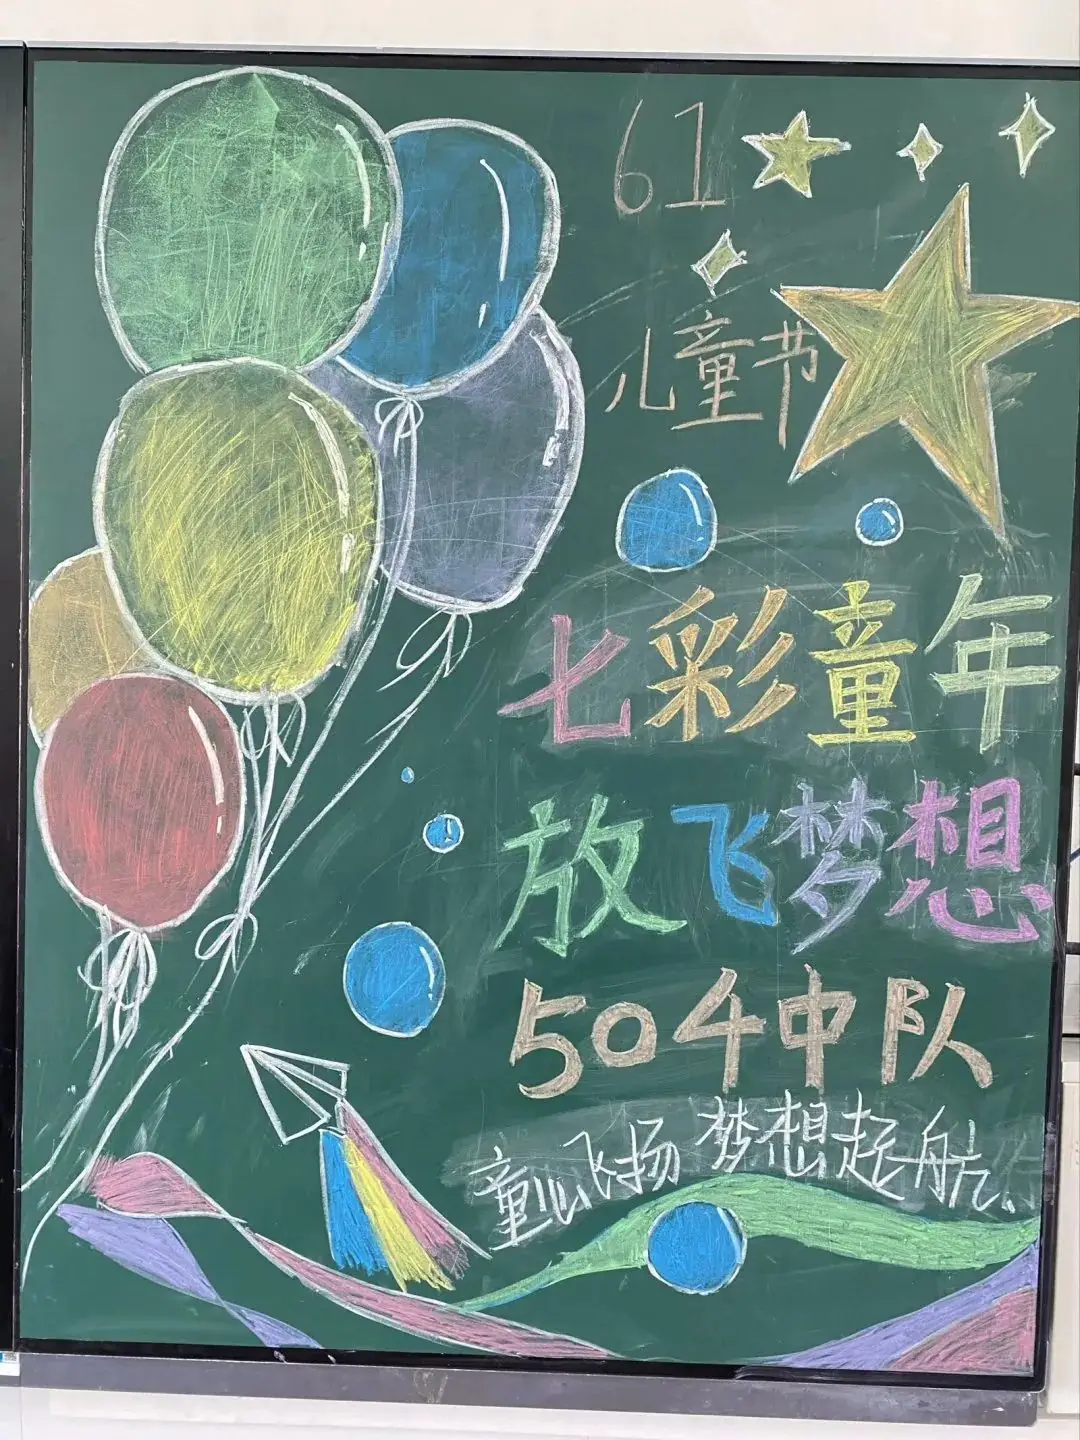 61
儿童节
七彩童年
放飞梦想
504中队
童心飞扬 梦想起航